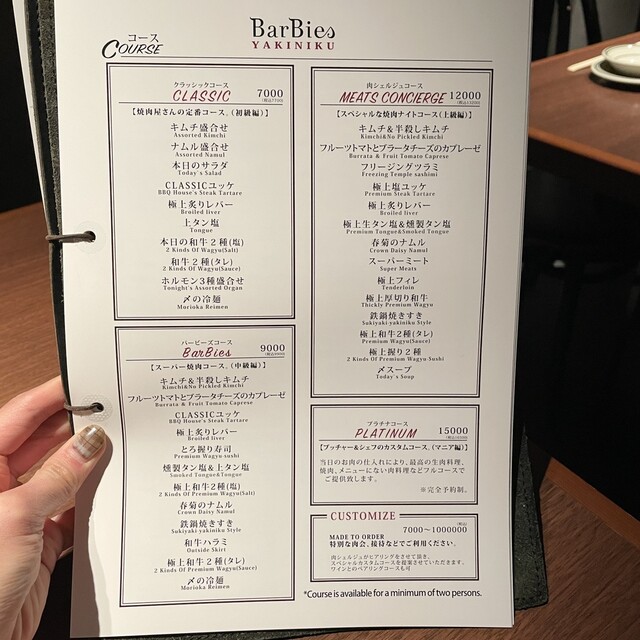 コース
COURSE
BarBies
YAKINIKU
クラッシックコース
CLASSIC 7000
(税込7700)
【焼肉屋さんの定番コース。(初級編)】
キムチ盛合せ
Assorted Kimchi
ナムル盛合せ
Assorted Namul
本日のサラダ
Today's Salad
CLASSICユッケ
BBQ House's Steak Tartare
極上炙りレバー
Broiled liver
上タン塩
Tongue
本日の和牛2種(塩)
2 Kinds Of Wagyu(Salt)
和牛2種(タレ)
2 Kinds Of Wagyu(Sauce)
ホルモン3種盛合せ
Tonight's Assorted Organ
〆の冷麺
Morioka Reimen
バービーズコース
BarBies 9000
(税込9900)
【スーパー焼肉コース。(中級編)】
キムチ&半殺しキムチ
Kimchi&No Pickled Kimchi
フルーツトマトとブラータチーズのカプレーゼ
Burrata & Fruit Tomato Caprese
CLASSICユッケ
BBQ House's Steak Tartare
極上炙りレバー
Broiled liver
とろ握り寿司
Premium Wagyu-sushi
燻製タン塩&上タン塩
Smoked Tongue&Tongue
極上和牛2種(塩)
2 Kinds Of Premium Wagyu(Salt)
春菊のナムル
Crown Daisy Namul
鉄鍋焼きすき
Sukiyaki-yakiniku Style
和牛ハラミ
Outside Skirt
極上和牛2種(タレ)
2 Kinds Of Premium Wagyu(Sauce)
〆の冷麺
Morioka Reimen
肉シェルジュコース
MEATS CONCIERGE 12000
(税込13200)
【スペシャルな焼肉ナイトコース(上級編)】
キムチ&半殺しキムチ
Kimchi&No Pickled Kimchi
フルーツトマトとブラータチーズのカプレーゼ
Burrata & Fruit Tomato Caprese
フリージングツラミ
Freezing Temple sashimi
極上塩ユッケ
Premium Steak Tartare
極上炙りレバー
Broiled liver
極上生タン塩&燻製タン塩
Premium Tongue&Smoked Tongue
春菊のナムル
Crown Daisy Namul
スーパーミート
Super Meats
極上フィレ
Tenderloin
極上厚切り和牛
Thickly Premium Wagyu
鉄鍋焼きすき
Sukiyaki-yakiniku Style
極上和牛2種(タレ)
Premium Wagyu(Sauce)
極上握り2種
2 Kinds Of Premium Wagyu-Sushi
〆スープ
Today's Soup
プラチナコース
PLATINUM 15000
(税込16500)
【ブッチャー&シェフのカスタムコース。(マニア編)】
当日のお肉の仕入れにより、最高の生肉料理、
焼肉、メニューにない肉料理などフルコースで
ご提供致します。
※完全予約制。
CUSTOMIZE
(税込)
7000〜1000000
MADE TO ORDER
特別な肉会、接待などでご利用ください。
肉シェルジュがヒアリングをさせて頂き、
スペシャルカスタムコースを提案させていただきます。
ワインとのペアリングコースも可
*Course is available for a minimum of two persons.